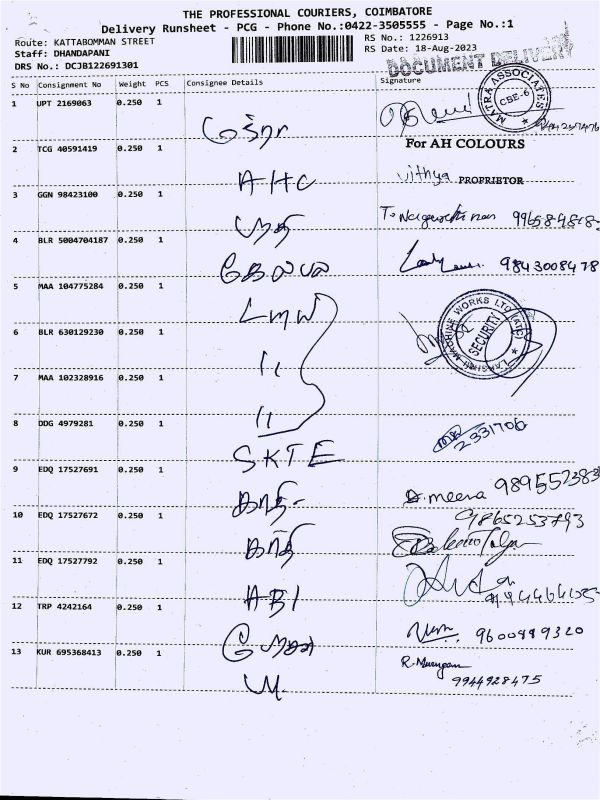 THE PROFESSIONAL COURIERS, COIMBATORE
Delivery Runsheet - PCG - Phone No.:0422-3505555 - Page No.:1
Route: KATTABOMMAN STREET RS No.: 1226913
Staff: DHANDAPANI RS Date: 18-Aug-2023
DRS No.: DCJB122691301
DOCUMENT DELIVERY
S No Consignment No Weight PCS Consignee Details Signature
1 UPT 2169063 0.250 1
MATRA ASSOCIATES CBE-6
2 TCG 40591419 0.250 1 AHC
For AH COLOURS
Vithya PROPRIETOR
3 GGN 98423100 0.250 1
4 BLR 5004704187 0.250 1 9843008478
5 MAA 104775284 0.250 1 LMW
LAKSHMI MACHINE WORKS LTD SECURITY
6 BLR 630129230 0.250 1 "
7 MAA 102328916 0.250 1 "
8 DDG 4979281 0.250 1 SKTE 2331706
9 EDQ 17527691 0.250 1 D. meena
10 EDQ 17527672 0.250 1 9865253793
11 EDQ 17527792 0.250 1 ABI
12 TRP 4242164 0.250 1 9600989320
13 KUR 695368413 0.250 1 R. Murugan
9944928475